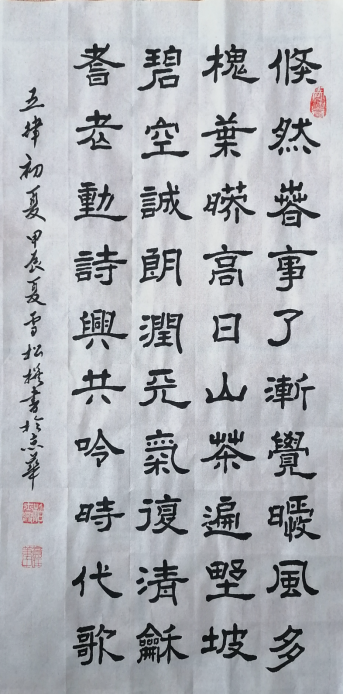 倏然萅事了漸覺暖風多
槐葉暎高日山茶遍野坡
碧空誠朗潤天氣復清龢
耆老動詩興共吟時代歌
五律初夏甲辰夏雪松書於京華